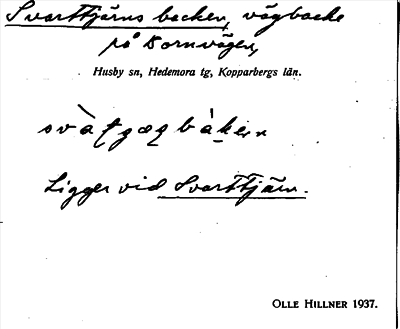 Svarttjärns backen, vägbacke
på Dornvägen,
Husby sn, Hedemora tg, Kopparbergs län.
Ligger vid Svarttjärn.
OLLE HILLNER 1937.